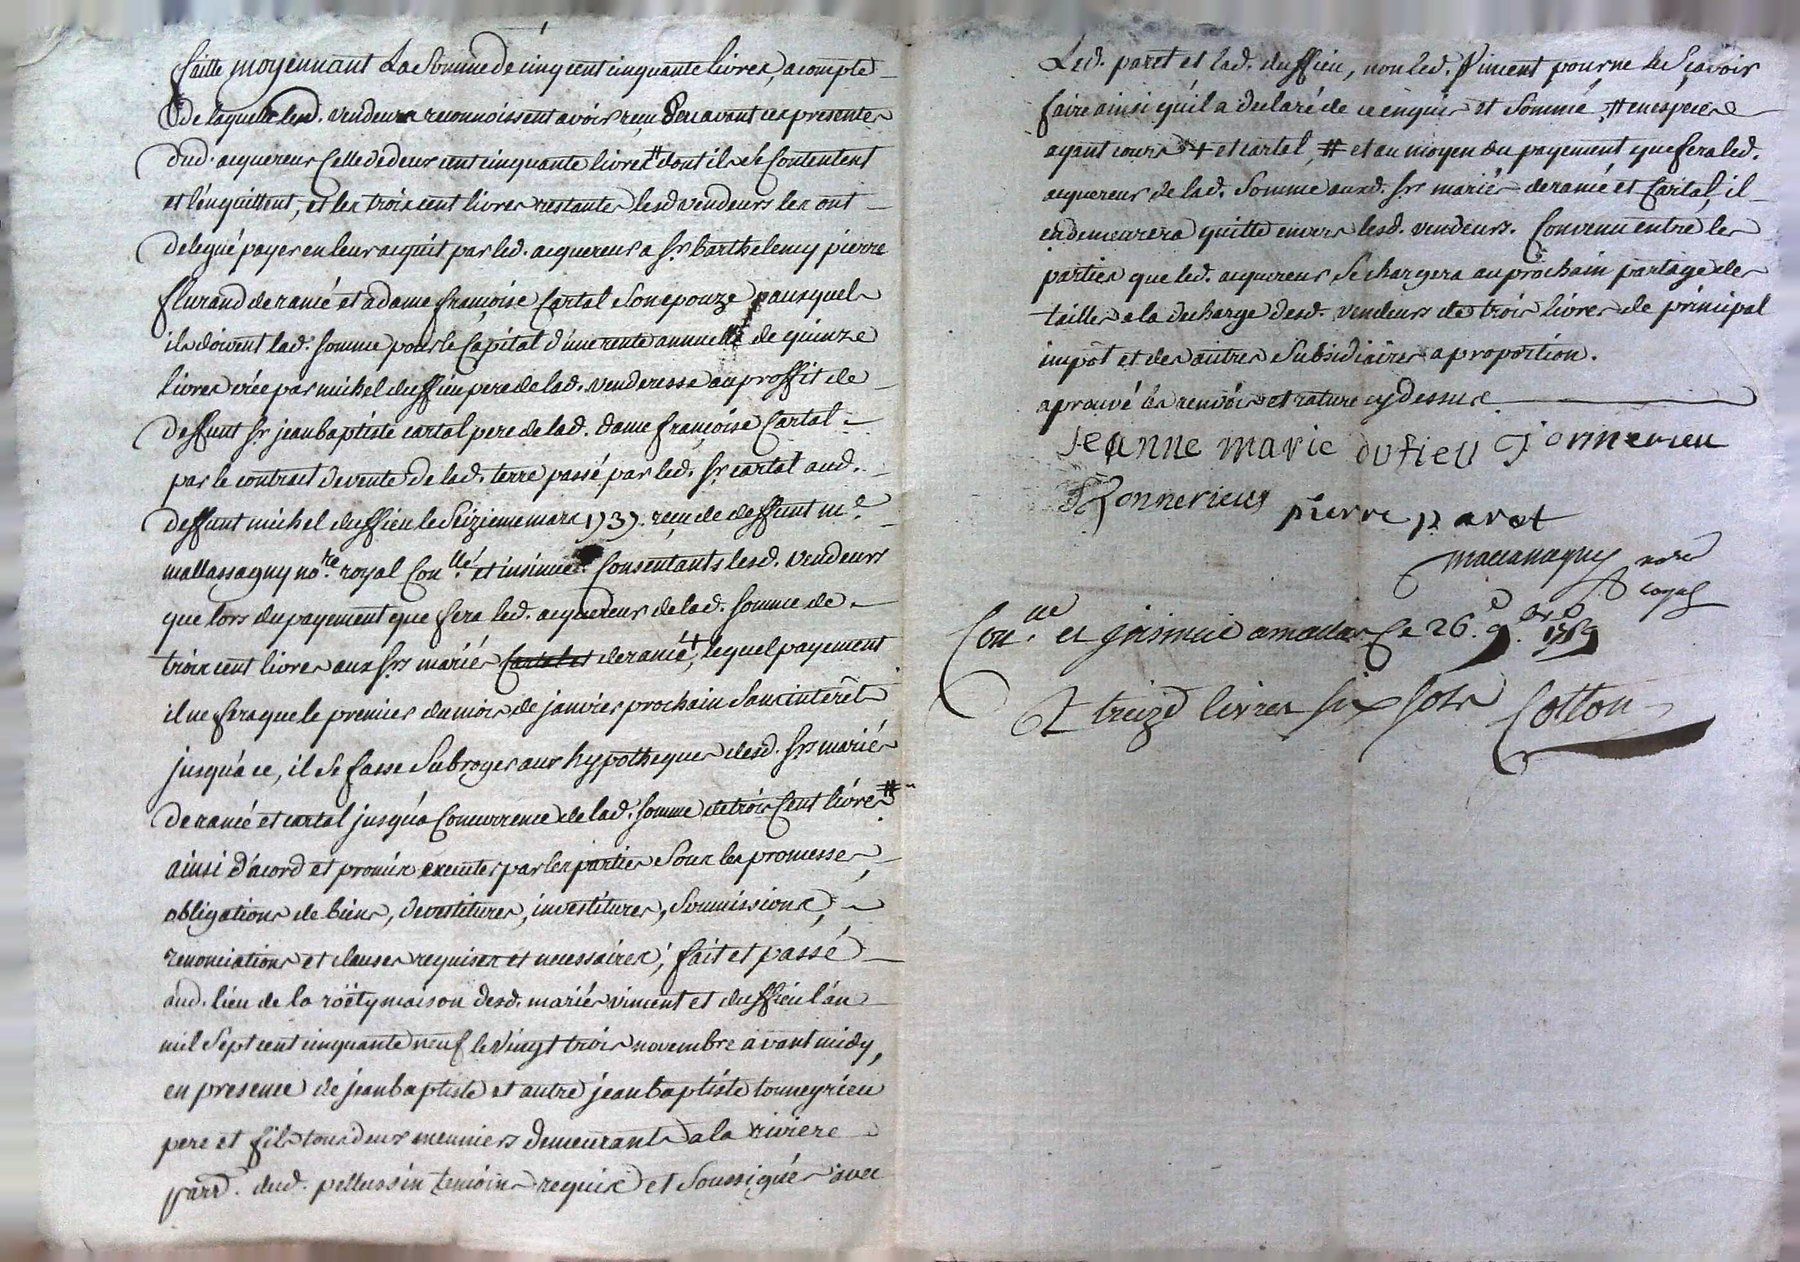 faitte moyennant La Somme de cinq cent cinquante livres, acompte
de laquelle lesd. vendeurs reconnoissent avoir reçu Icy avant ces presentes
dud. acquereur Celle de deux cent cinquante livres # dont ils se Contentent
et l'enquittent, et les trois cent livres restantes lesd vendeurs les ont
delegué payer en leur acquit par led. acquereur a Sr barthelemy pierre
flurand de ranié et a dame françoise Cartal Son epouze, auxquels
ils doivent lad. Somme pour le Capital d'une rente annuelle de quinze
livres créé par michel duffieu pere de lad. venderesse au proffit de
deffunt Sr jean baptiste cartal pere de lad. dame françoise Cartal
par le contract de vente de lad. terre passé par led. Sr cartal aud.
deffunt michel duffieu le Seizieme mars 1737. reçu de deffunt me.
mallassagny nore. royal Conllé. et insinué. Consentants lesd. vendeurs
que lors du payement que fera led. acquereur de lad. Somme de
trois cent livres aux Srs mariés Cartal et de ranié +, lequel payement
il ne fera que le premier du mois de janvier prochain Sans intérêt
jusqu'a ce, il se fasse Subroger aux hypotheques desd. Srs mariés
de ranié et cartal jusqu'a Concurrence de lad. Somme de trois Cent livres #
ainsi d'acord et promis executer par les parties Sous les promesses,
obligations de biens, devestitures, investitures, Soumissions,
renonciations et clauses requises et necessaires; fait et passé
aud. lieu de la roëty maison desd. mariés viment et duffieu l'an
mil Sept cent cinquante neuf le vingt trois novembre avant midy,
en presence de jean baptiste et autre jean baptiste tonneyrieu
pere et fils tous deux meuniers demeurants a la riviere
parr. dud. pellussin temoins requis et Soussignés avec
Led. paret et lad. duffieu, non led. Viment pour ne le Sçavoir
faire ainsi qu'il a declaré de ce enquis et Sommé. # en especes
ayant cours + et cartel, # et au moyen du payement que fera led.
acquereur de lad. Somme auxd. Srs mariés de ranié et Cartal, il
en demeurera quitte envers lesd. vendeurs. Convenu entre les
parties que led. acquereur Se chargera au prochain partage de
tailles a la decharge desd. vendeurs de trois livres de principal
impôt et des autres Subsidiaires a proportion.
aprouvé les renvois et rature cy dessus
jeanne marie dufieu J tonnerieu
tonnerieux pierre paret
nore
royal
Conllé. et insinué a malleval Ce 26. 9bre 1759
R treize livres six sols Cotton